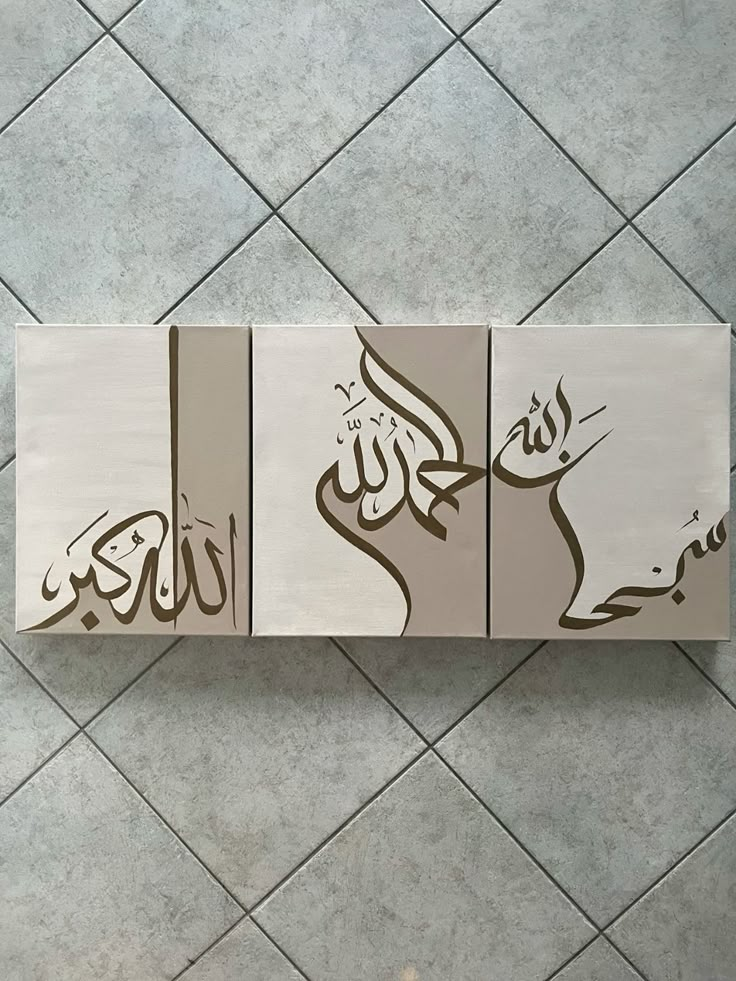 سبحن الله
الحمد لله
الله اكبر